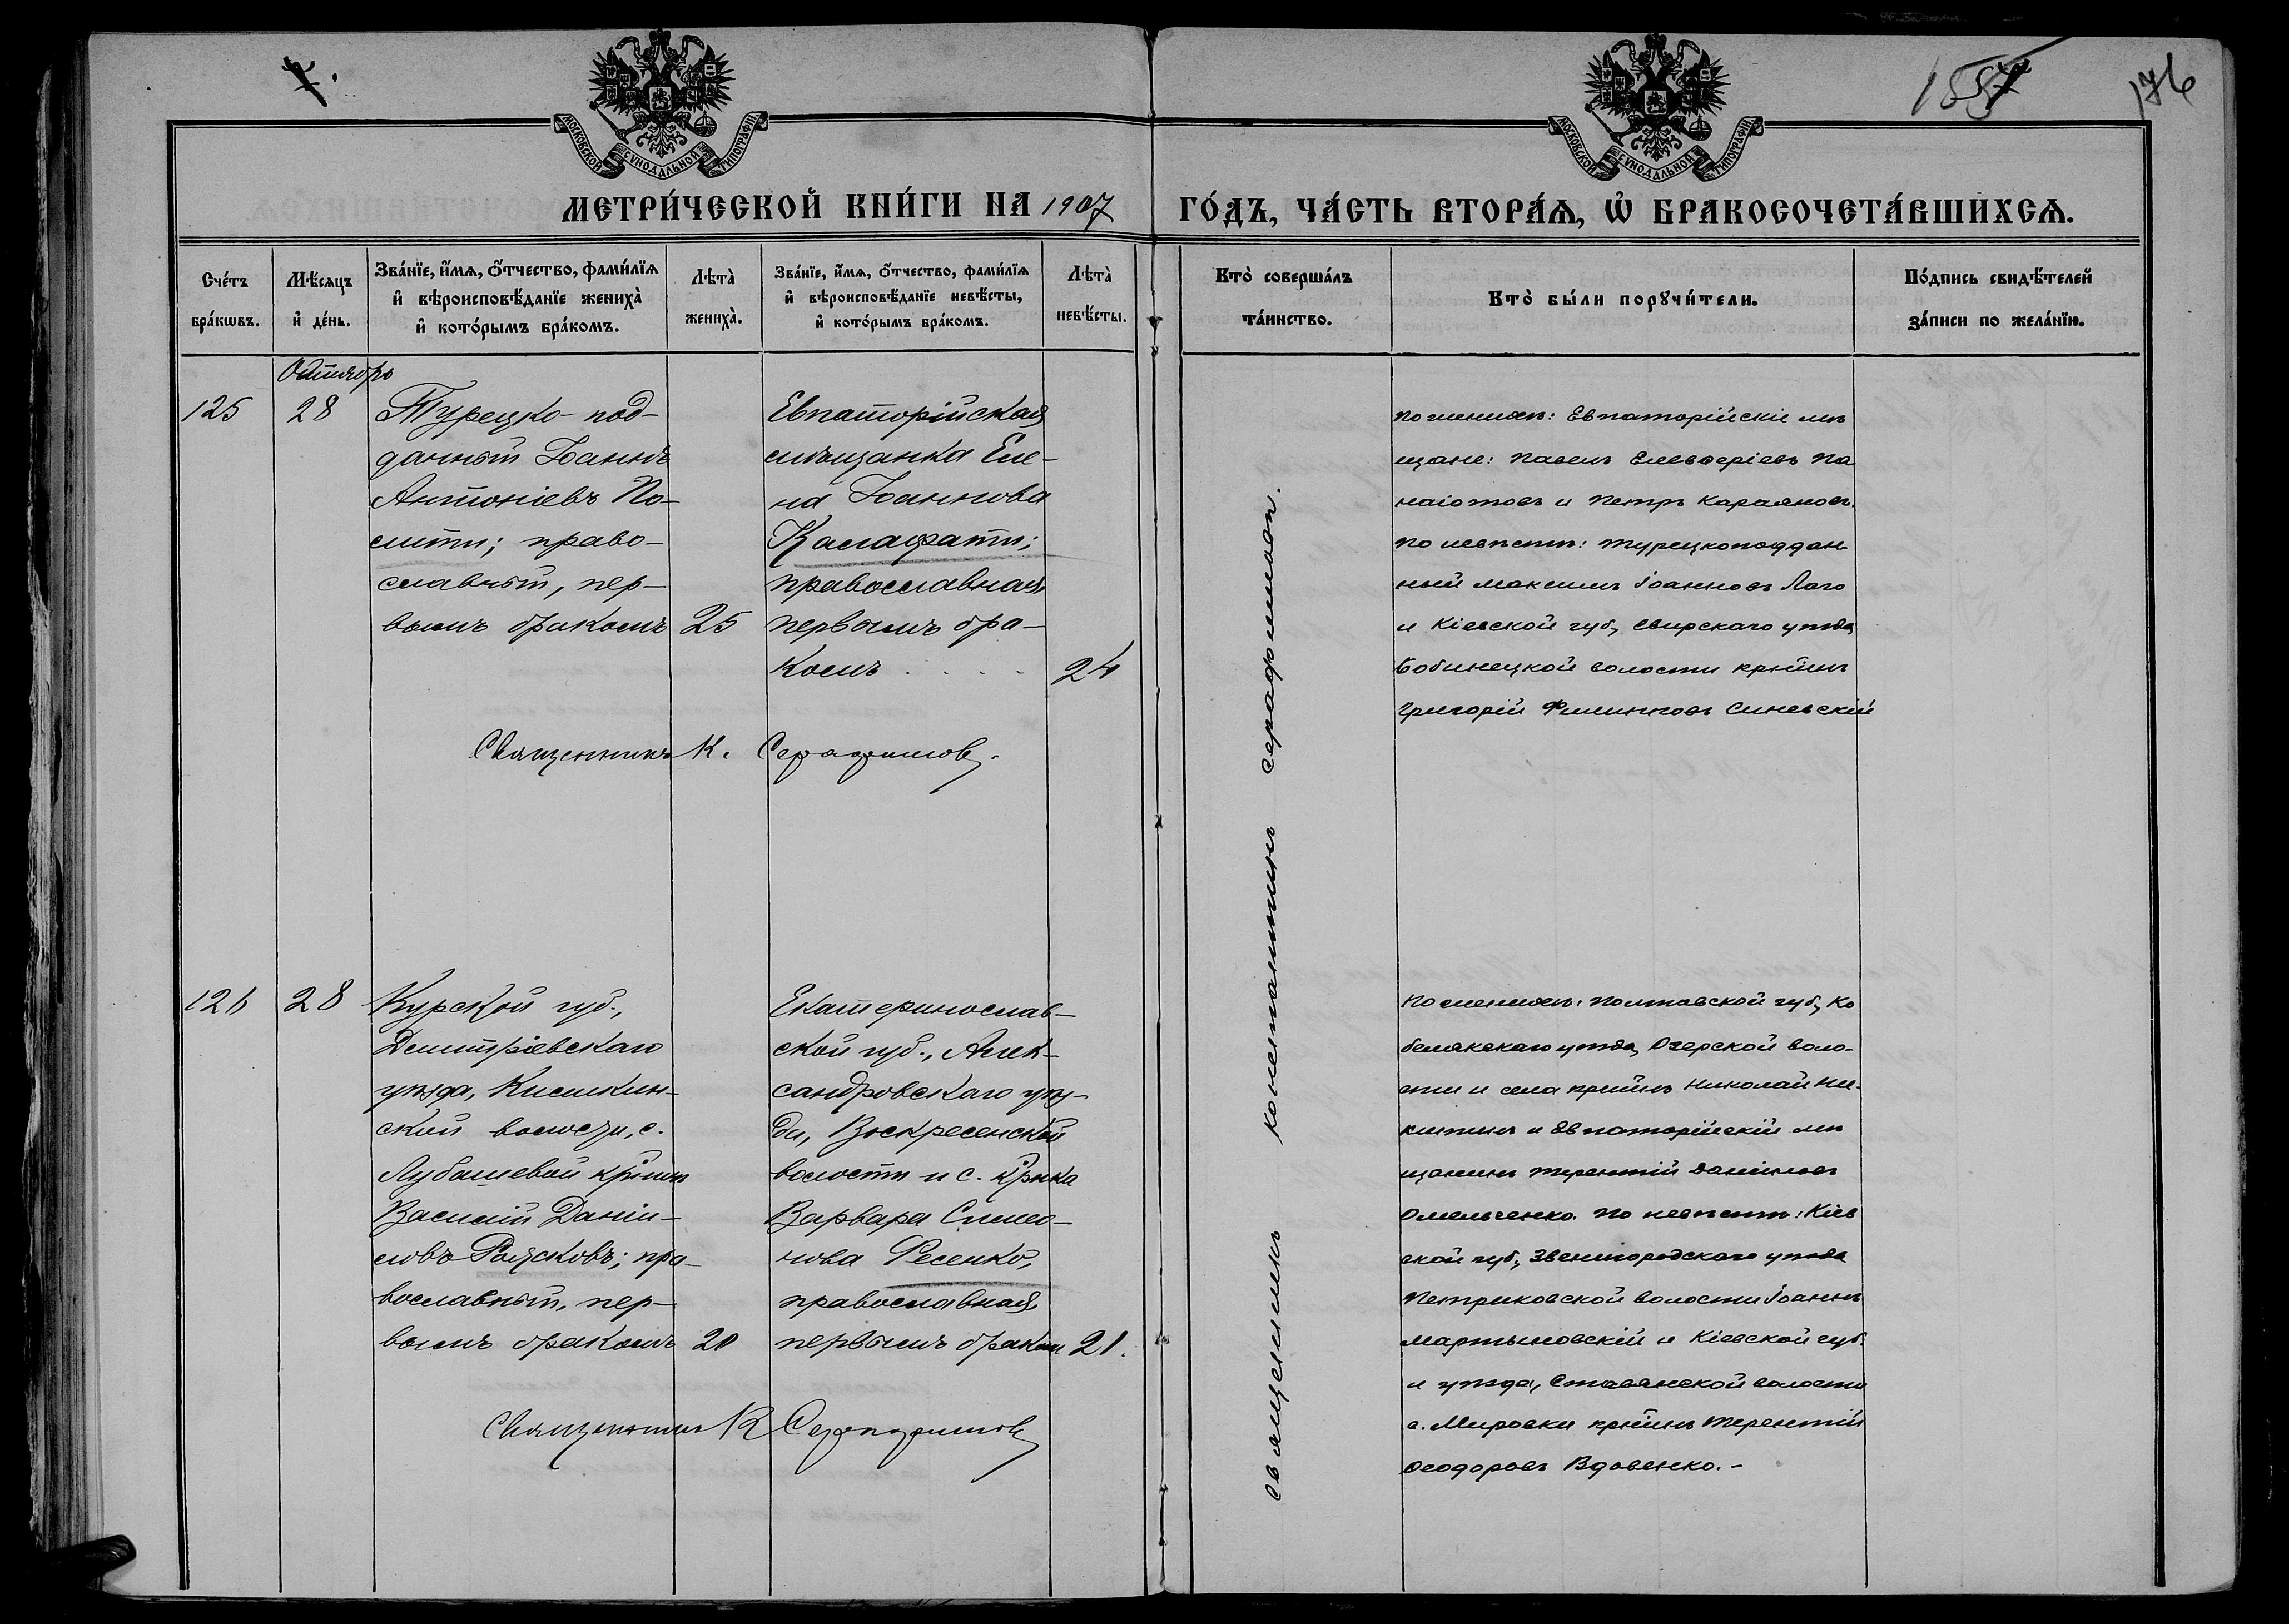 7.
157
176
МОСКОВСКОЙ СѴНОДАЛЬНОЙ ТИПОГРАФІИ
МОСКОВСКОЙ СѴНОДАЛЬНОЙ ТИПОГРАФІИ
МЕТРИ́ЧЕСКОЙ КНИ́ГИ НА 1907 ГО́ДЪ, ЧА́СТЬ ВТОРА́Ѧ, Ѡ҆ БРАКОСОЧЕТА́ВШИХСѦ.
Сче́тъ
бра́кѡвъ.
Мѣ́сѧцъ
и҆ де́нь.
Зва́нїе, и҆́мѧ, ѻ҆́тчество, фами́лїѧ
и҆ вѣроисповѣ́данїе жениха̀
и҆ кото́рымъ бра́комъ.
Лѣта̀
жениха̀.
Зва́нїе, и҆́мѧ, ѻ҆́тчество, фами́лїѧ
и҆ вѣроисповѣ́данїе невѣ́сты,
и҆ кото́рымъ бра́комъ.
Лѣта̀
невѣ́сты.
Кто̀ соверша́лъ
та́инство.
Кто̀ бы́ли порꙋчи́тели.
По́дпись свидѣ́телей
за́писи по жела́нїю.
Октября
125
28
Турецко-под-
данный Іоаннъ
Антоніевъ По-
лити; право-
славный, пер-
вымъ бракомъ
25
Евпаторійская
мѣщанка Еле-
на Іоаннова
Калафати;
православная,
первымъ бра-
комъ . . . .
24
Священникъ К. Серафимовъ.
По женихѣ: Евпаторійскіе мѣ
щане: Павелъ Елевферіевъ Па
наіотовъ и Петръ Караяновъ.
По невѣстѣ: Турецкоподдан
ный Максимъ Іоанновъ Лаго
и Кіевской губ., Сквирскаго уѣзда
волости кр̃нинъ
Григорій Филипповъ Синевскій
Священникъ Константинъ Серафимовъ.
126
28
Курской губ.,
Дмитріевскаго
уѣзда,
ской волости, с.
кр̃нинъ
Василій Даніи-
ловъ пра-
вославный, пер-
вымъ бракомъ
20
Екатеринослав-
ской губ., Алек-
сандровскаго уѣз-
да, Воскресенской
волости и с. кр̃нка
Варвара Симео-
нова Фесенко,
православная,
первымъ бракомъ
21.
Священникъ К Серафимовъ
По женихѣ: Полтавской губ., Ко
белякскаго уѣзда, Озерской воло-
сти и села кр̃нинъ Николай Ни-
китинъ и Евпаторійскій мѣ
щанинъ Терентій Даніиловъ
Омельченко. По невѣстѣ: Кіев
ской губ., Звенигородскаго уѣзда
Петриковской волости Іоаннъ
Мартыновскій и Кіевской губ.
и уѣзда, Ставянской волости
с. Мировки кр̃нинъ Терентій
Ѳеодоровъ Вдовенко.-